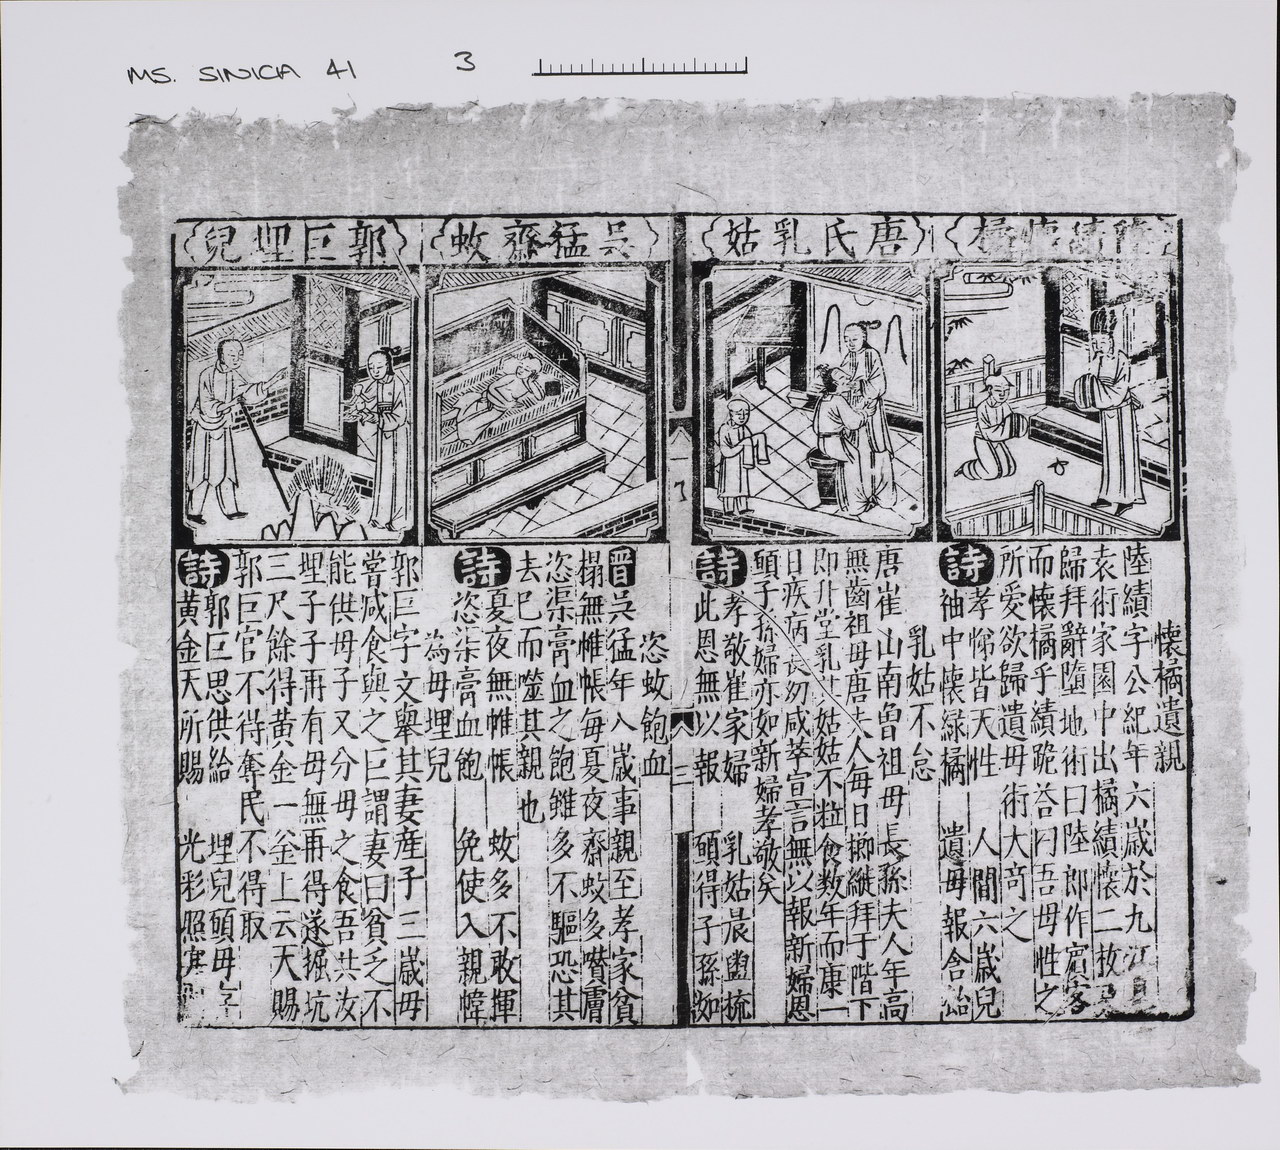 MS. SINICA 41 3
懷橘
唐氏乳姑
吳猛齋蚊
郭巨埋兒
懷橘遺親
陸績字公紀年六歲於九江見
袁術家園中出橘績懷二枚
歸拜辭墮地術曰陸郎作賓客
而懷橘乎績跪答曰吾母性之
所愛欲歸遺母術大奇之
詩
孝悌皆天性 人間六歲兒
袖中懷綠橘 遺母報含飴
乳姑不怠
唐崔山南曾祖母長孫夫人年高
無齒祖母唐夫人每日櫛縰拜于階下
即升堂乳其姑姑不粒食数年而康一
日疾病長幼咸萃宣言無以報新婦恩
願子孫婦亦如新婦孝敬矣
詩
孝敬崔家婦 乳姑晨盥梳
此恩無以報 願得子孫如
三
恣蚊飽血
晋吳猛年八歲事親至孝家貧
榻無帷帳每夏夜齋蚊多噆膚
恣渠膏血之飽雖多不驅恐其
去巳而噬其親也
詩
夏夜無帷帳 蚊多不敢揮
恣渠膏血飽 免使入親幃
為母埋兒
郭巨字文舉其妻産子三歲母
嘗减食與之巨謂妻曰貧乏不
能供母子又分母之食吾共汝
埋子子再有母無再得遂掘坑
三尺餘得黄金一釜上云天賜
郭巨官不得奪民不得取
詩
郭巨思供給 埋兒頭母
黄金天所賜 光彩照寒